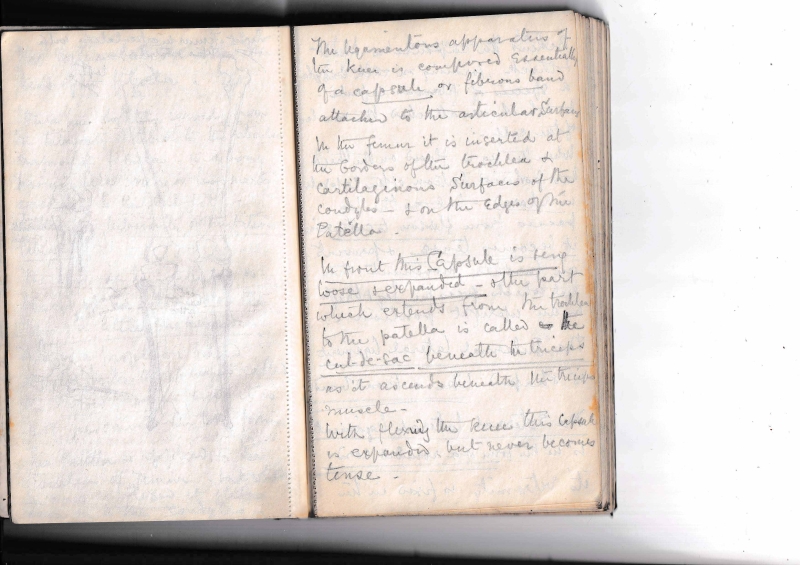 The ligamentous apparatus of
the knee is composed Essentially
of a capsule or fiberous band
attached to the articular Surfaces
In the femur it is inserted at
the borders of the trochlea &
cartilaginous Surfaces of the
condyles - & on the Edges of the
Patella.
In front this Capsule is very
loose & expanded - & the part
which extends from the trochlea
to the patella is called the
cul-de-sac beneath the triceps
as it ascends beneath the triceps
muscle -
With flexing the knee this Capsule
is expanded, but never becomes
tense -